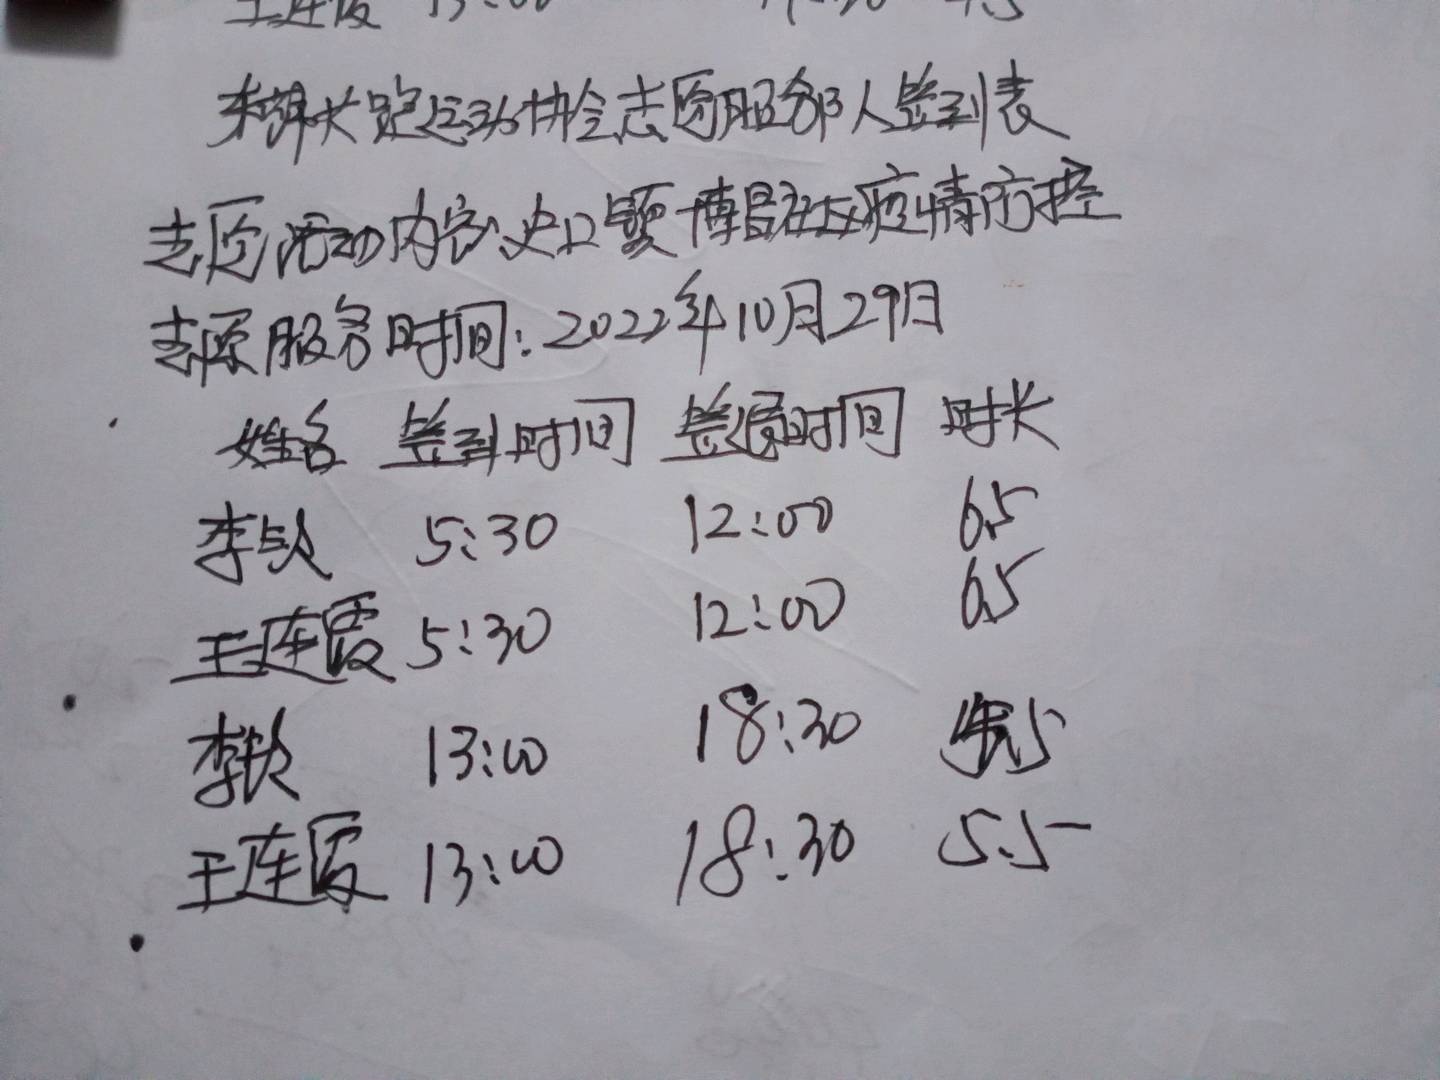 王连霞 13:00
长跑运动协会志愿服务部人签到表
志愿活动内容:史口镇博昌社区疫情防控
志愿服务时间:2022年10月29日
姓名 签到时间 签退时间 时长
李 5:30 12:00 6.5
王连霞 5:30 12:00 6.5
李 13:00 18:30 5
王连霞 13:00 18:30 5.5